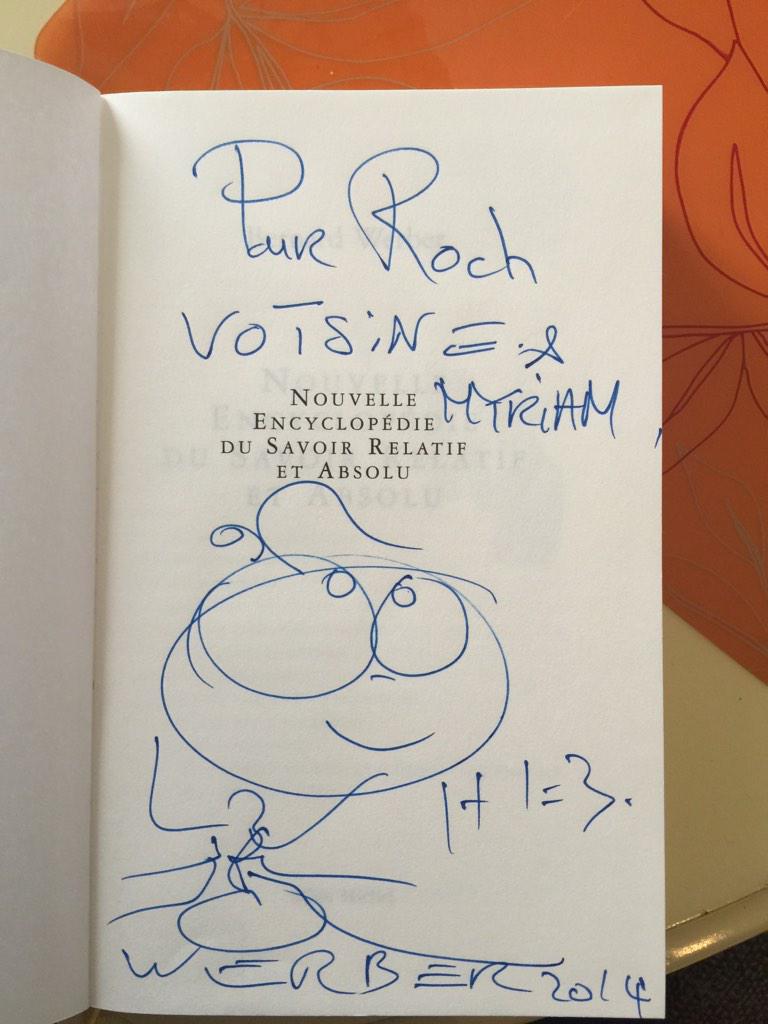 Pour Roch
VOTSiNE &
MYRiAM,
NOUVELLE
ENCYCLOPÉDIE
DU SAVOIR RELATIF
ET ABSOLU
1+1=3.
WERBER 2014